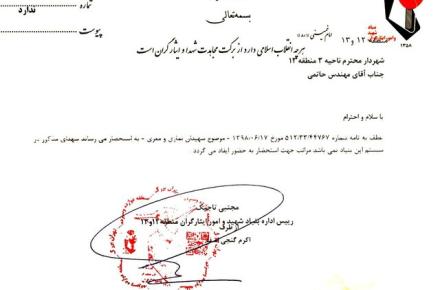 بسمه‌تعالی
شماره
ندارد
پیوست
بنیاد
شهید
۱۳۵۸
منطقه ۱۲ و ۱۳
امام خمینی (ره)
هرچه انقلاب اسلامی دارد از برکت مجاهدت شهدا و ایثارگران است
شهردار محترم ناحیه ۳ منطقه ۱۲
جناب آقای مهندس حاتمی
با سلام و احترام
عطف به نامه شماره ۵۱۲/۳۳/۴۴۷۶۷ مورخ ۱۳۹۸/۰۶/۱۷ - موضوع شهیدان و معزی - به استحضار می رساند شهدای مذکور در
سیستم این بنیاد نمی باشد مراتب جهت استحضار به حضور ایفاد می گردد
مجتبی تاجیک
رییس اداره بنیاد شهید و امور ایثارگران منطقه ۱۲و۱۳
از طرف
اکرم گنجی